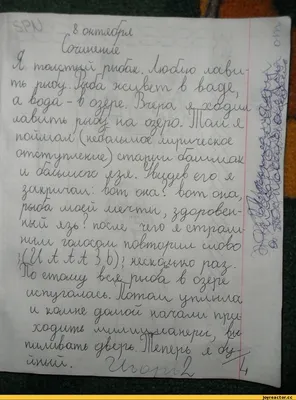 SPN
8 октября
Сочинение
Я толстый рыбак. Люблю лави-
ть рибу. Риба живет в ваде,
а вода - в озере. Вчера я хадил
лавить рибу на озеро. Там я
поймал (небальшое лирическое
отступление) старый башмак
и бальшого езя. Увидев его я
закричал: вот она! вот она,
рыба моей мечты, здоровен-
ный язь! после чего я страш-
ным голосом повторил слово
несколько раз.
По етому вся рыба в озере
испугалась. Потом уплыла
и комне домой начали при-
ходить милиционеры, вы
пиливать дверь. Теперь я бу
йный. Игорь 2
4
joyreactor.cc